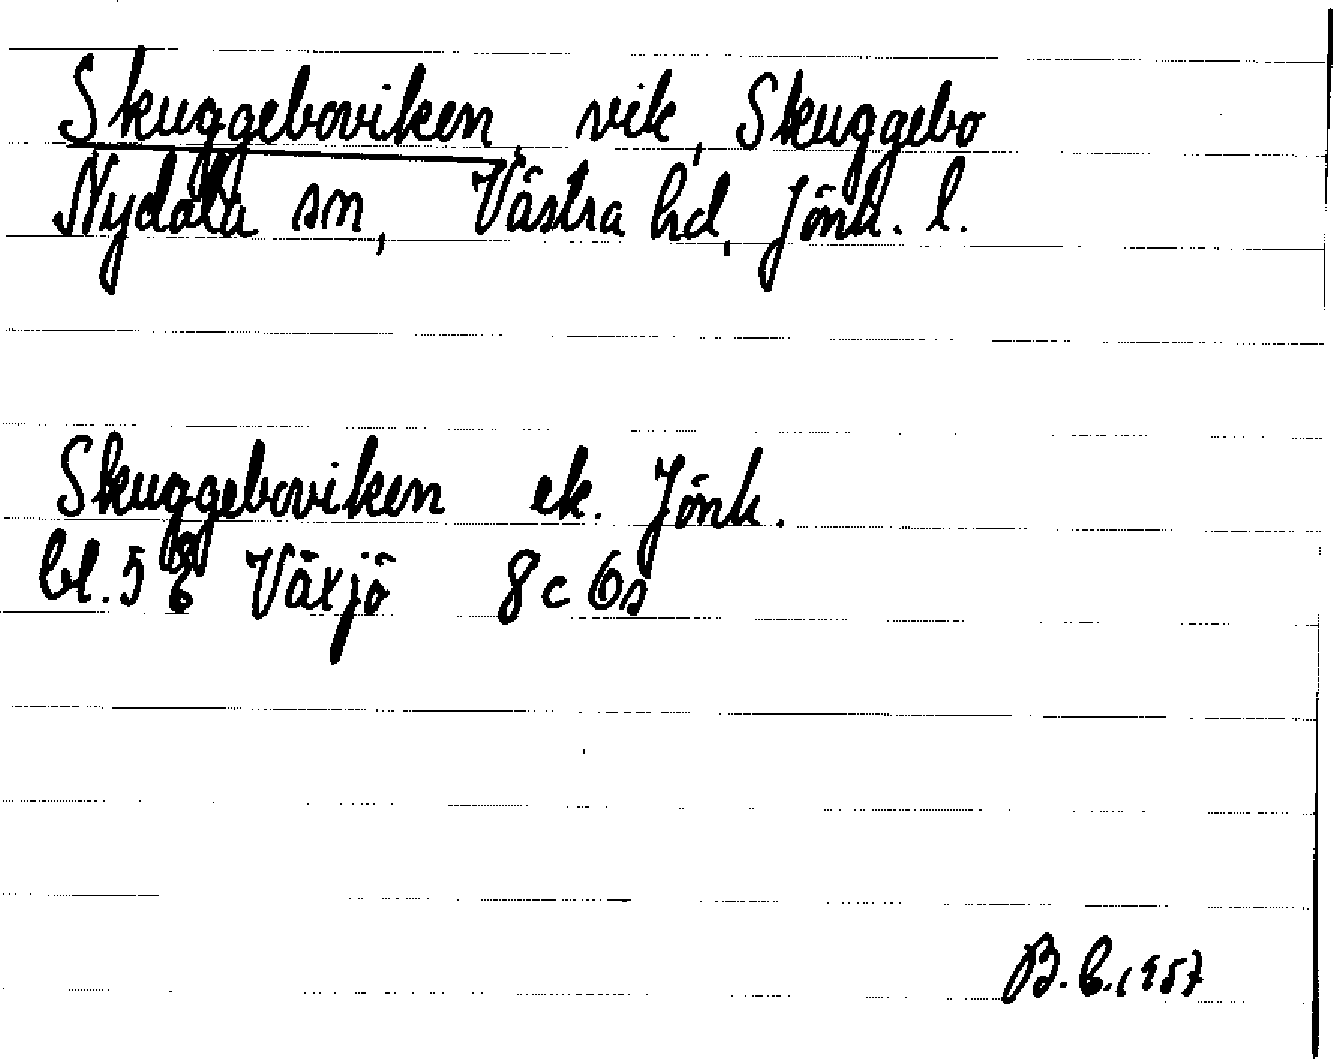 Skuggeboviken, vik, Skuggebo
Nydala sn, Västra hd, Jönk. l.
Skuggeboviken ek. Jönk.
bl. 5 8 Växjö 8c 6s
B.C. 1957